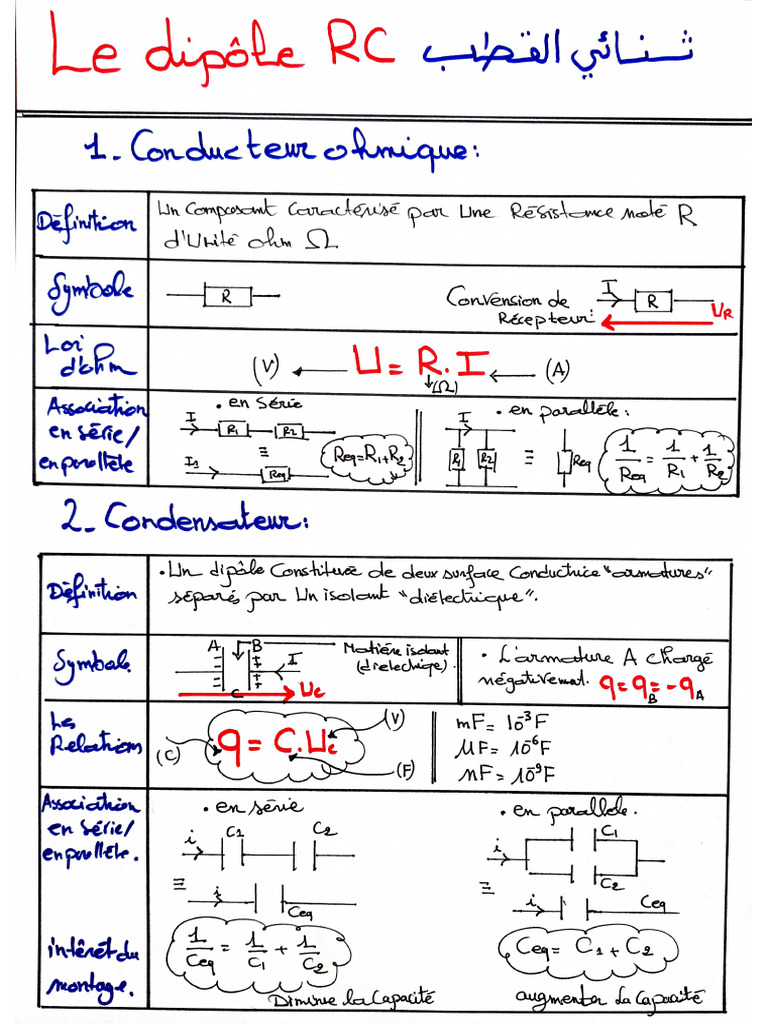 Le dipôle RC ثنائي القطب
1_ Conducteur ohmique:
Définition
Un Composant Caractérisé par Une Résistance noté R
d'Unité ohm Ω
Symbole
R
Convension de
Récepteur:
I
R
UR
Loi
d'ohm
(V) ← U = R.I ← (A)
↓(Ω)
Association
en série/
en parallèle
. en Série
I
R1
R2
≡
I1
Req
Req=R1+R2
. en parallèle:
I
R1
R2
≡
Req
1/Req = 1/R1 + 1/R2
2_ Condensateur:
Définition
. Un dipôle Constituée de deux surface Conductrice "armatures"
séparés par Un isolant "diélectrique".
Symbole
A
B
I
C
Uc
Matière isolant
(dielectrique).
. L'armature A chargé
négativement. q = qB = -qA
Les
Relations
q = C.Uc
(V)
(C)
(F)
mF = 10⁻³F
μF = 10⁻⁶F
nF = 10⁻⁹F
Association
en série/
en parallèle.
. en série
i
C1
C2
≡
i
Ceq
. en parallele.
i
C1
C2
≡
i
Ceq
intérêt du
montage.
1/Ceq = 1/C1 + 1/C2
Diminue la Capacité
Ceq = C1 + C2
augmenter la Capacité